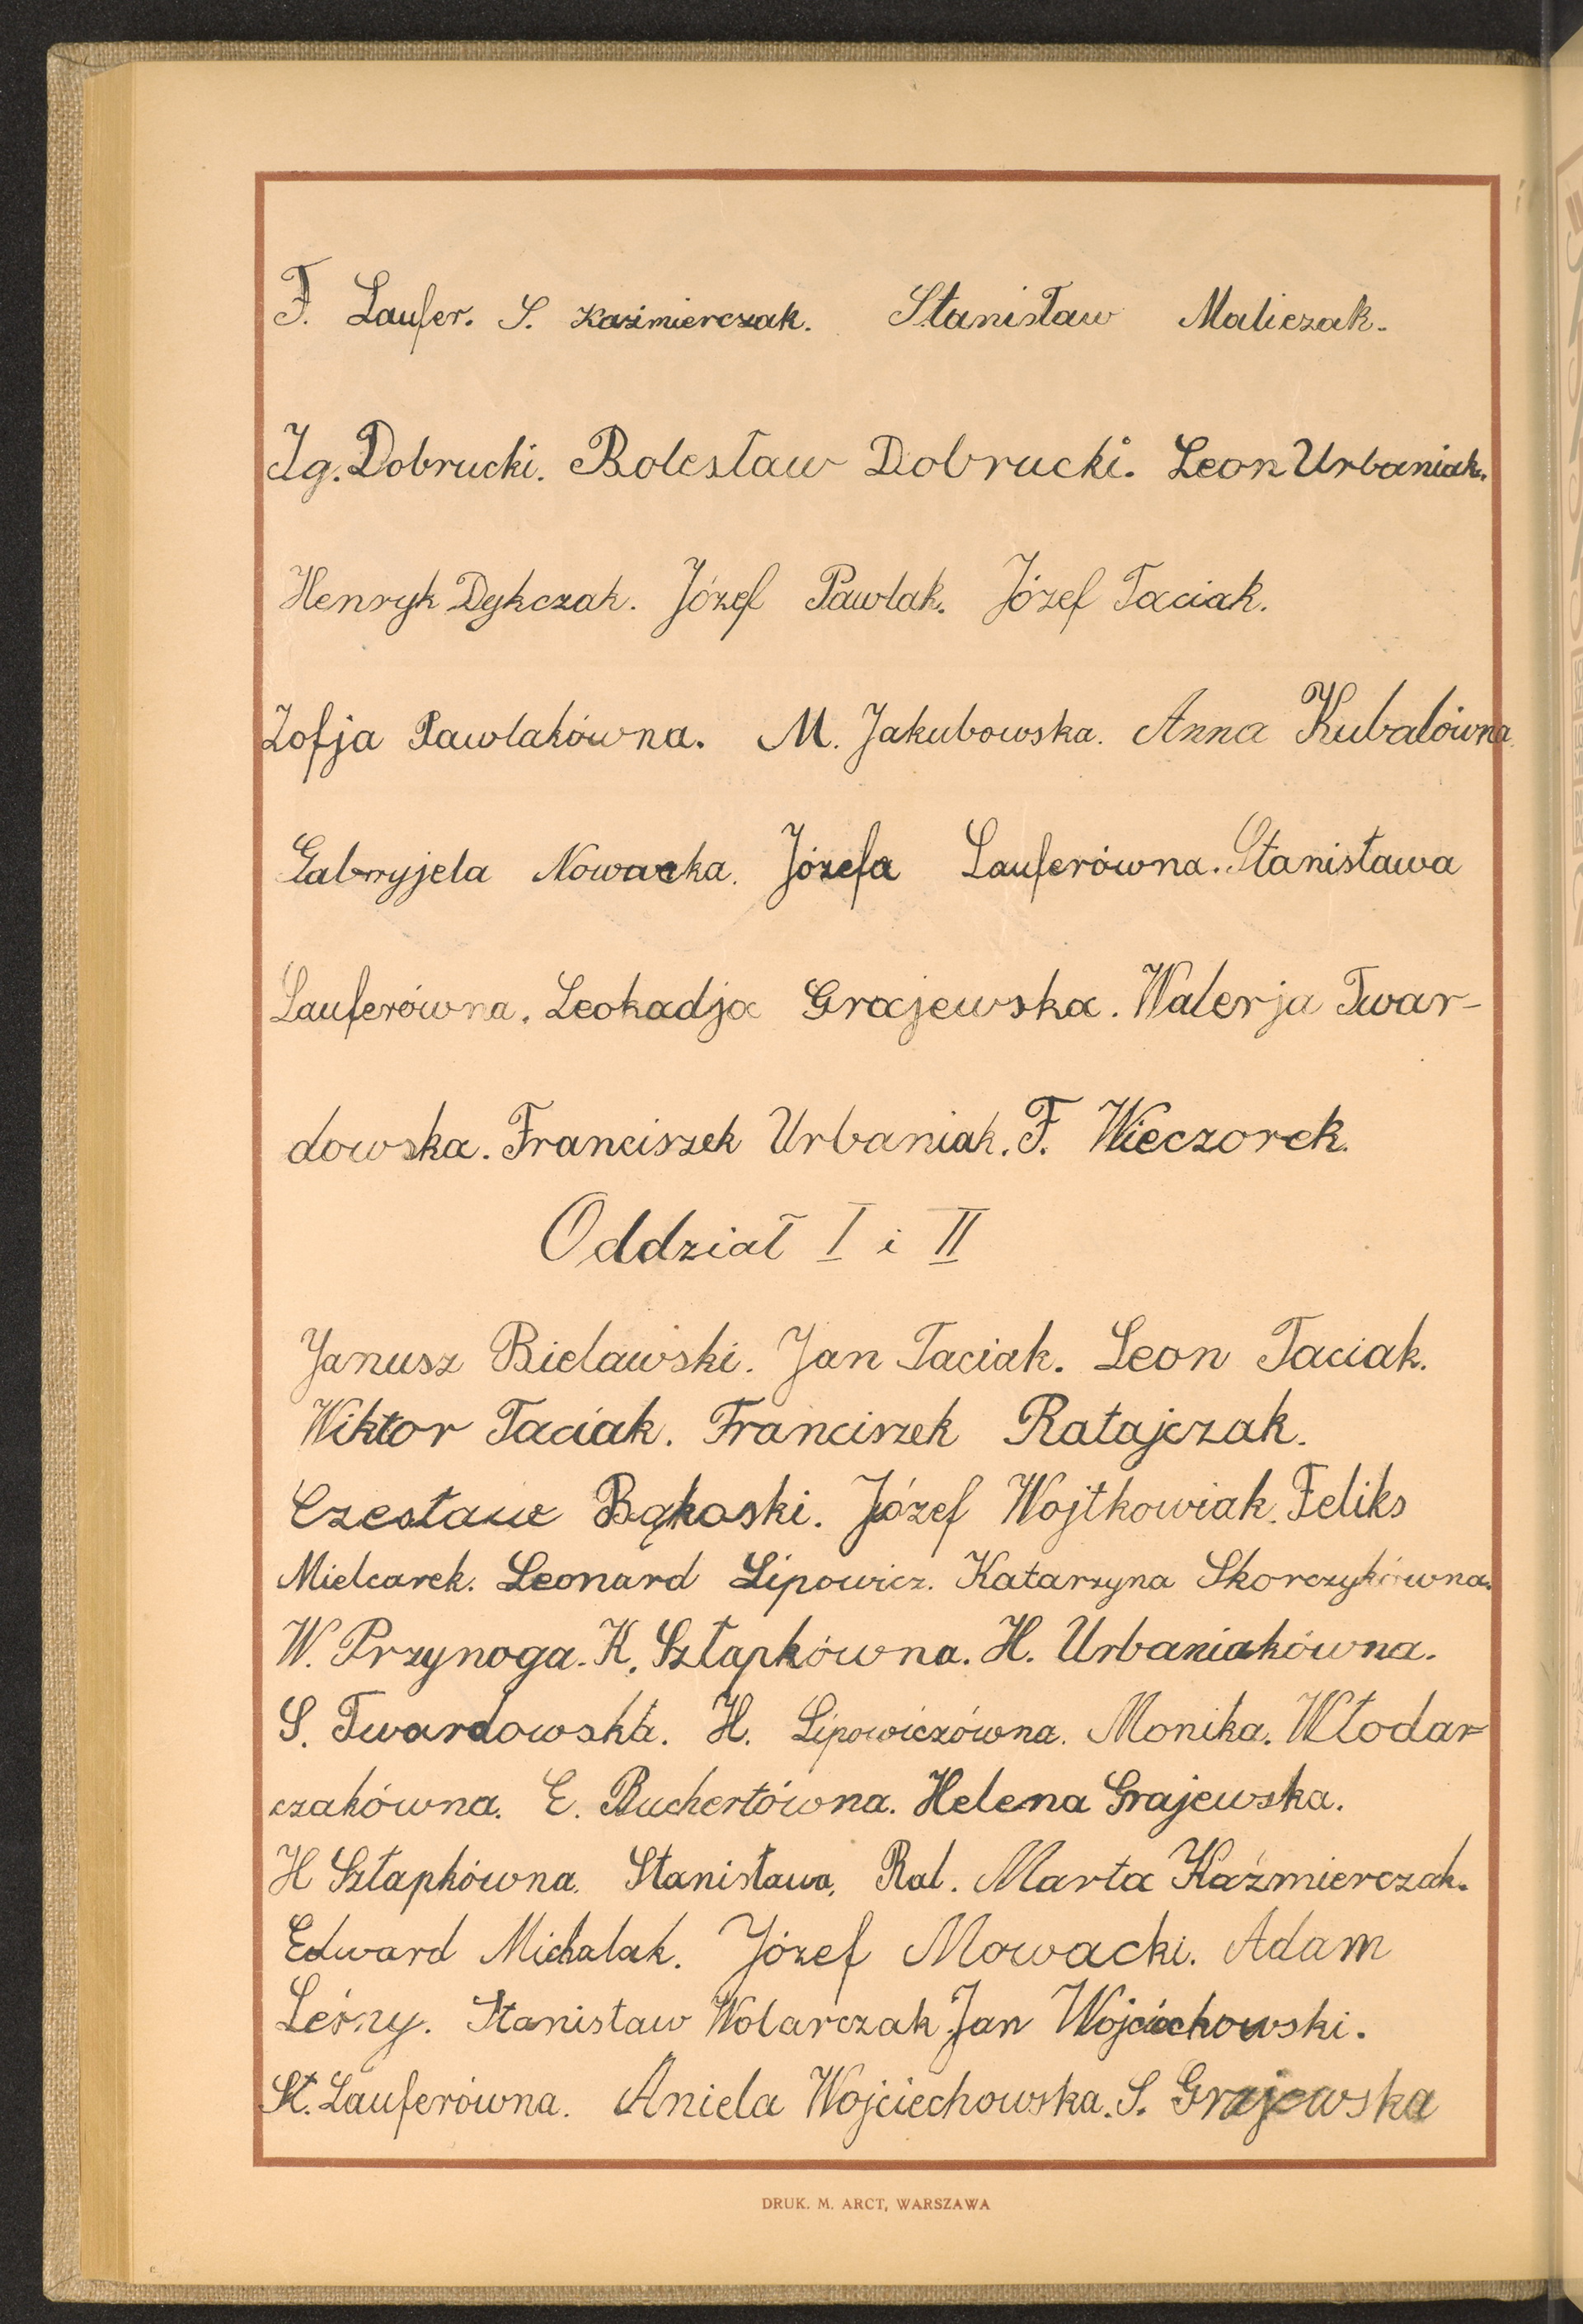 F. Laufer. S. Kazimierczak. Stanisław Maliczak.
Ig. Dobrucki. Bolesław Dobrucki. Leon Urbaniak.
Henryk Dykczak. Józef Pawlak. Józef Taciak.
Zofja Pawlakówna. M. Jakubowska. Anna Kubalówna.
Gabryjela Nowacka. Józefa Lauferówna. Stanisława
Lauferówna. Leokadja Grajewska. Walerja Twar-
dowska. Franciszek Urbaniak. F. Wieczorek.
Oddział I i II
Janusz Bielawski. Jan Taciak. Leon Taciak.
Wiktor Taciak. Franciszek Ratajczak.
Czesław Bąkoski. Józef Wojtkowiak. Feliks
Mielcarek. Leonard Lipowicz. Katarzyna Skorczykówna.
W. Przynoga. K. Sztapkówna. H. Urbaniakówna.
S. Twardowska. H. Lipowiczówna. Monika. Włodar
czakówna. E. Buchertówna. Helena Grajewska.
H Sztapkówna. Stanisława. Ral. Marta Kaźmierczak.
Edward Michalak. Józef Nowacki. Adam
Leśny. Stanisław Wolarczak. Jan Wojciechowski.
St. Lauferówna. Aniela Wojciechowska. S. Grajewska
DRUK. M. ARCT, WARSZAWA